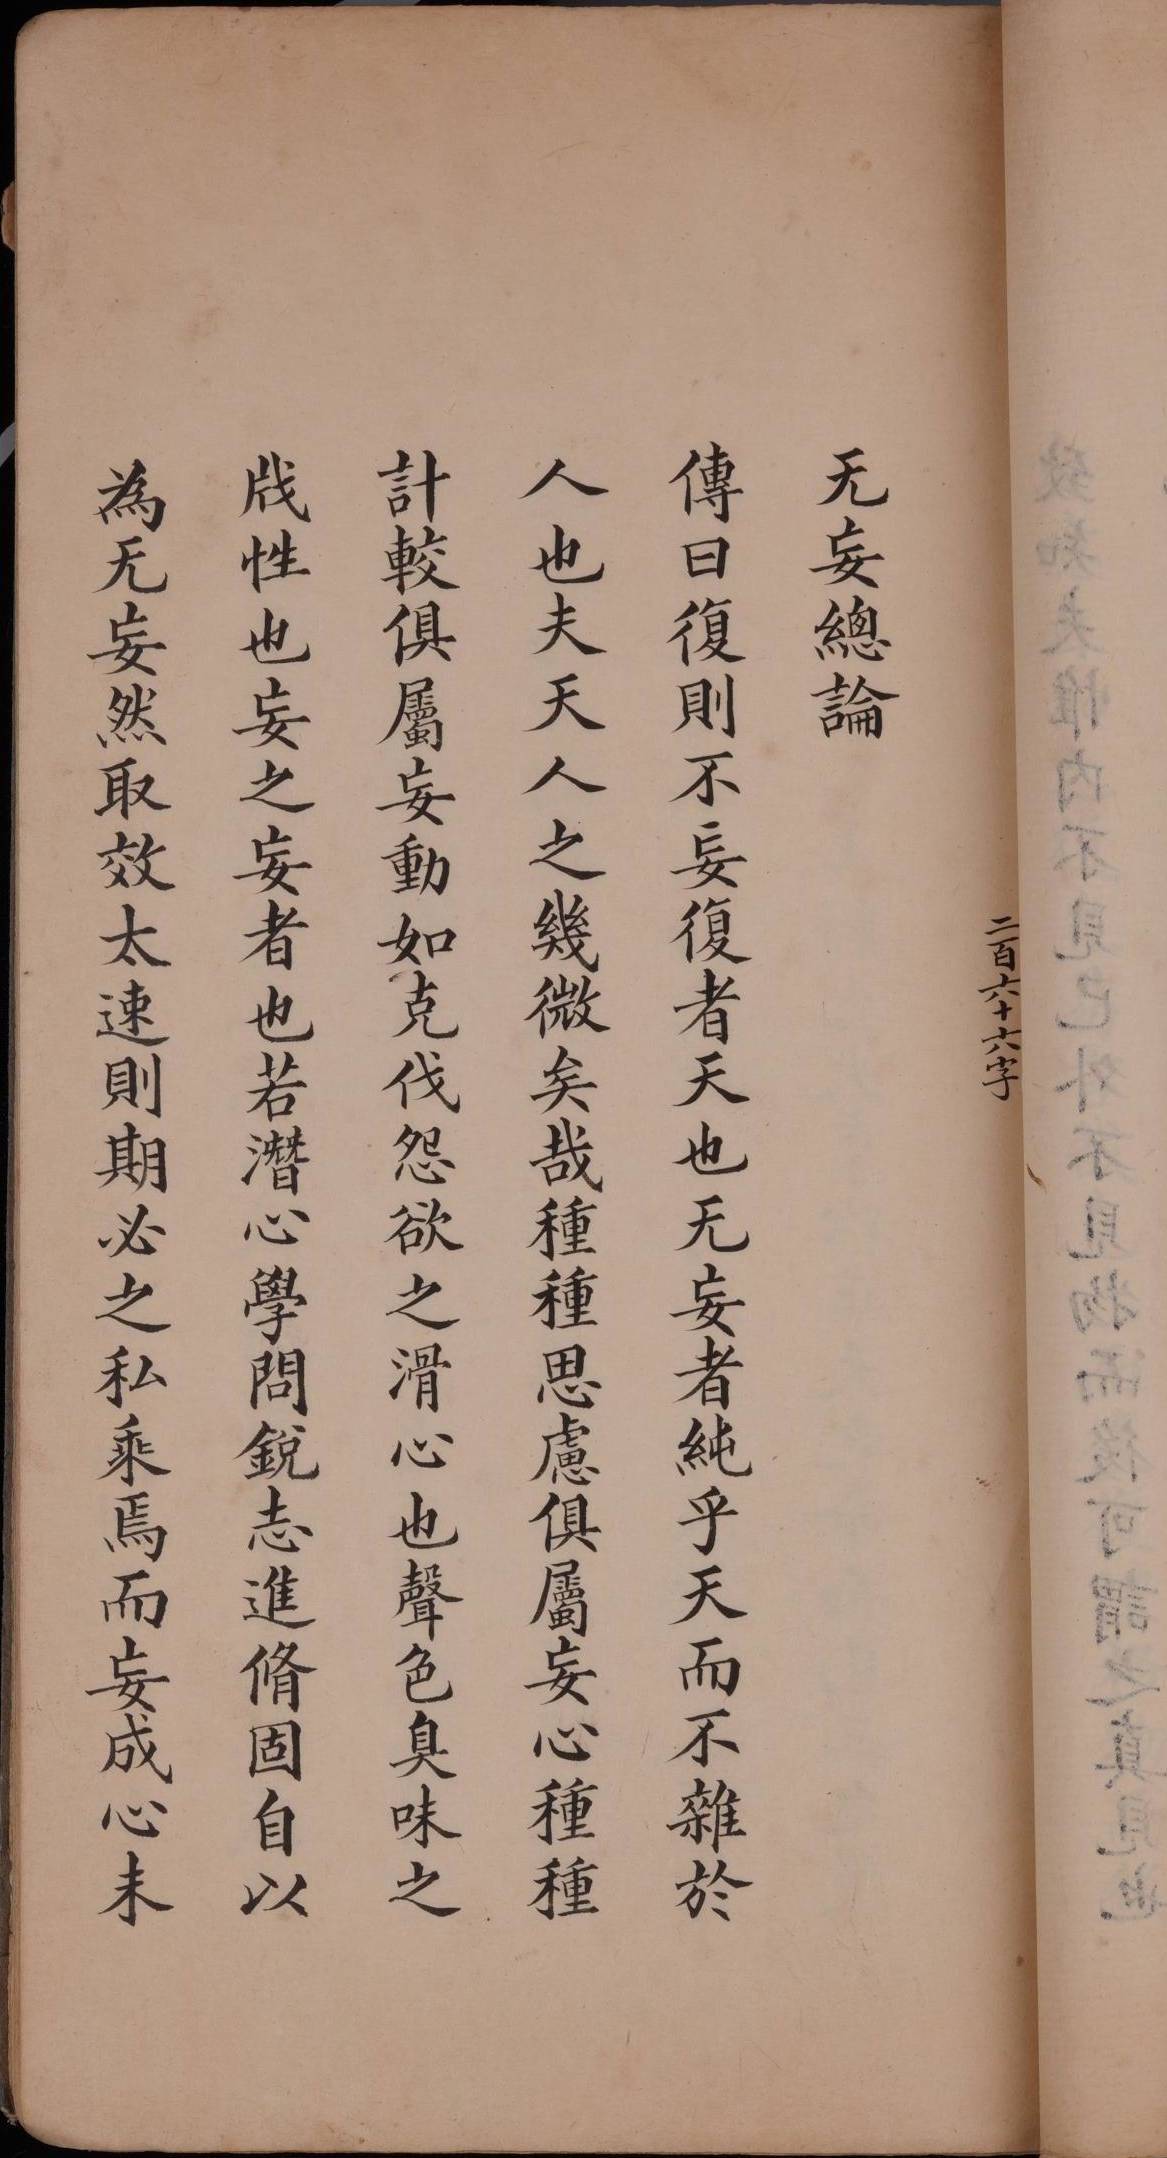 二百六十六字
无妄總論
傳曰復則不妄復者天也无妄者純乎天而不雜於
人也夫天人之幾微矣哉種種思慮俱屬妄心種種
計較俱屬妄動如克伐怨欲之滑心也聲色臭味之
戕性也妄之妄者也若潛心學問銳志進脩固自以
為无妄然取效太速則期必之私乘焉而妄成心未